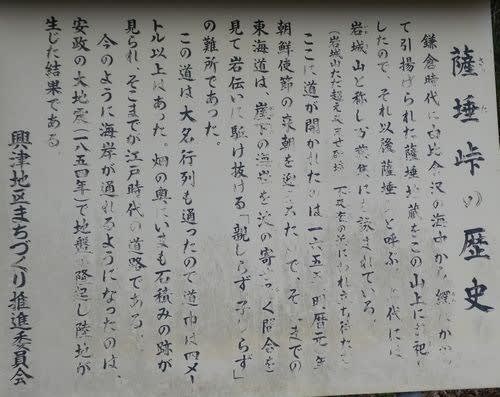 薩埵峠の歴史
さった
鎌倉時代に由比倉沢の海中から網にかかっ
て引揚げられた薩埵地蔵をこの山上に祀り
したので、それ以後薩埵山と呼ぶ。上代には
岩城山と称し万葉集にも詠まれている。
(岩城山ただ超え来ませ磯埼
ここに道が開かれたのは一六五五年明暦元年
朝鮮使節の来朝を迎えた、で、それまでの
東海道は、崖下の海岸を波の寄せ引く間合を
見て岩伝いに駆け抜ける「親しらず子しらず」
の難所であった。
この道は大名行列も通ったので道巾は四メー
トル以上はあった。畑の奥にいまも石積みの跡が
見られ、そこまでが江戸時代の道路である。
今のように海岸が通れるようになったのは、
安政の大地震(一八五四年)で地盤が隆起し陸地が
生じた結果である
興津地区まちづくり推進委員会